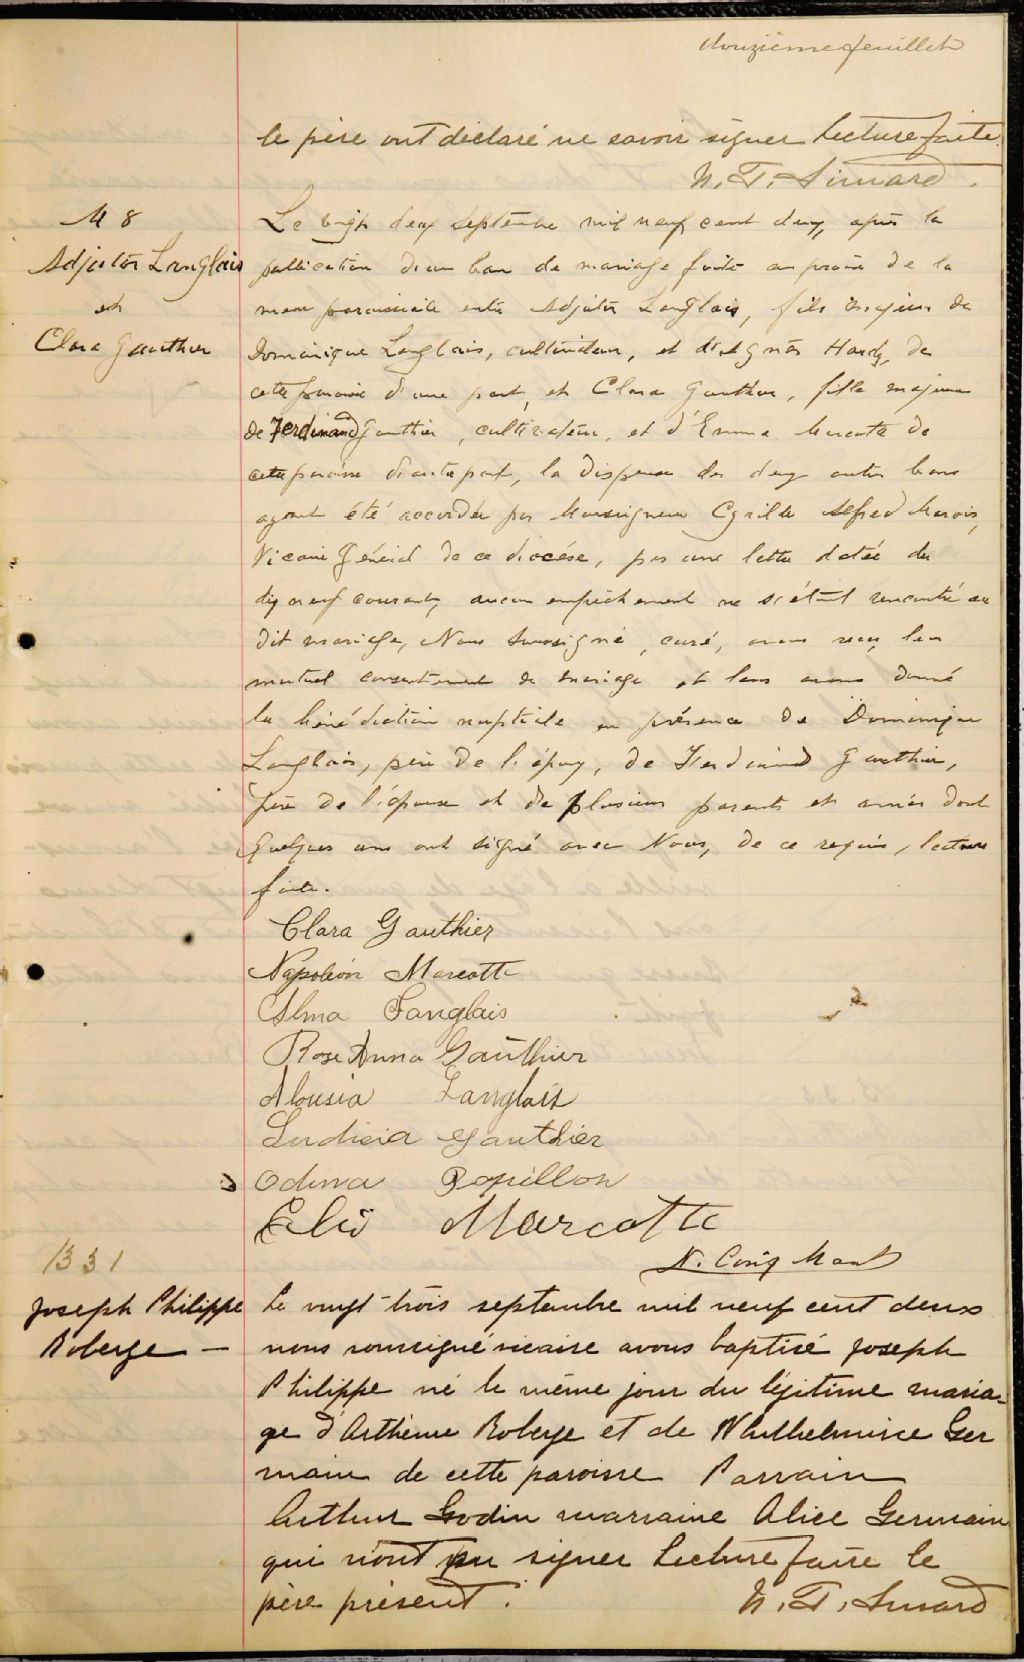 douzième feuillet
le père ont déclaré ne savoir signer Lecture faite.
N. T. Simard.
M 8
Adjutor Langlais
et
Clara Gauthier
Le vingt deux septembre mil neuf cent deux, après la
publication d'un ban de mariage faite au prône de la
messe paroissiale entre Adjutor Langlais, fils majeur de
Dominique Langlais, cultivateur, et d'Agnès Hardy, de
cette paroisse d'une part, et Clara Gauthier, fille majeure
de Ferdinand Gauthier, cultivateur, et d'Emma Marcotte de
cette paroisse d'autre part, la dispense des deux autres bans
ayant été accordée par Monseigneur Cyrille Alfred Marois,
Vicaire Général de ce diocèse, par une lettre datée du
dix neuf courant, aucun empêchement ne s'étant rencontré au
dit mariage, Nous soussigné, curé, avons reçu leur
mutuel consentement de mariage et leur avons donné
la bénédiction nuptiale en présence de Dominique
Langlais, père de l'époux, de Ferdinand Gauthier,
père de l'épouse et de plusieurs parents et amis dont
quelques uns ont signé avec Nous, de ce requis, lecture
faite.
Clara Gauthier
Napoléon Marcotte
Alma Langlais
Rose Anna Gauthier
Alousia Langlais
Ludicia Gauthier
Odina Papillon
Marcotte
N.
B 31
Joseph Philippe
Roberge —
Le vingt trois septembre mil neuf cent deux
nous soussigné vicaire avons baptisé Joseph
Philippe né le même jour du légitime maria-
ge d'Arthème Roberge et de Whilhelmine Ger
main de cette paroisse Parrain
Arthur Godin marraine Alice Germain
qui n'ont pu signer Lecture faite le
père présent.
N. T. Simard